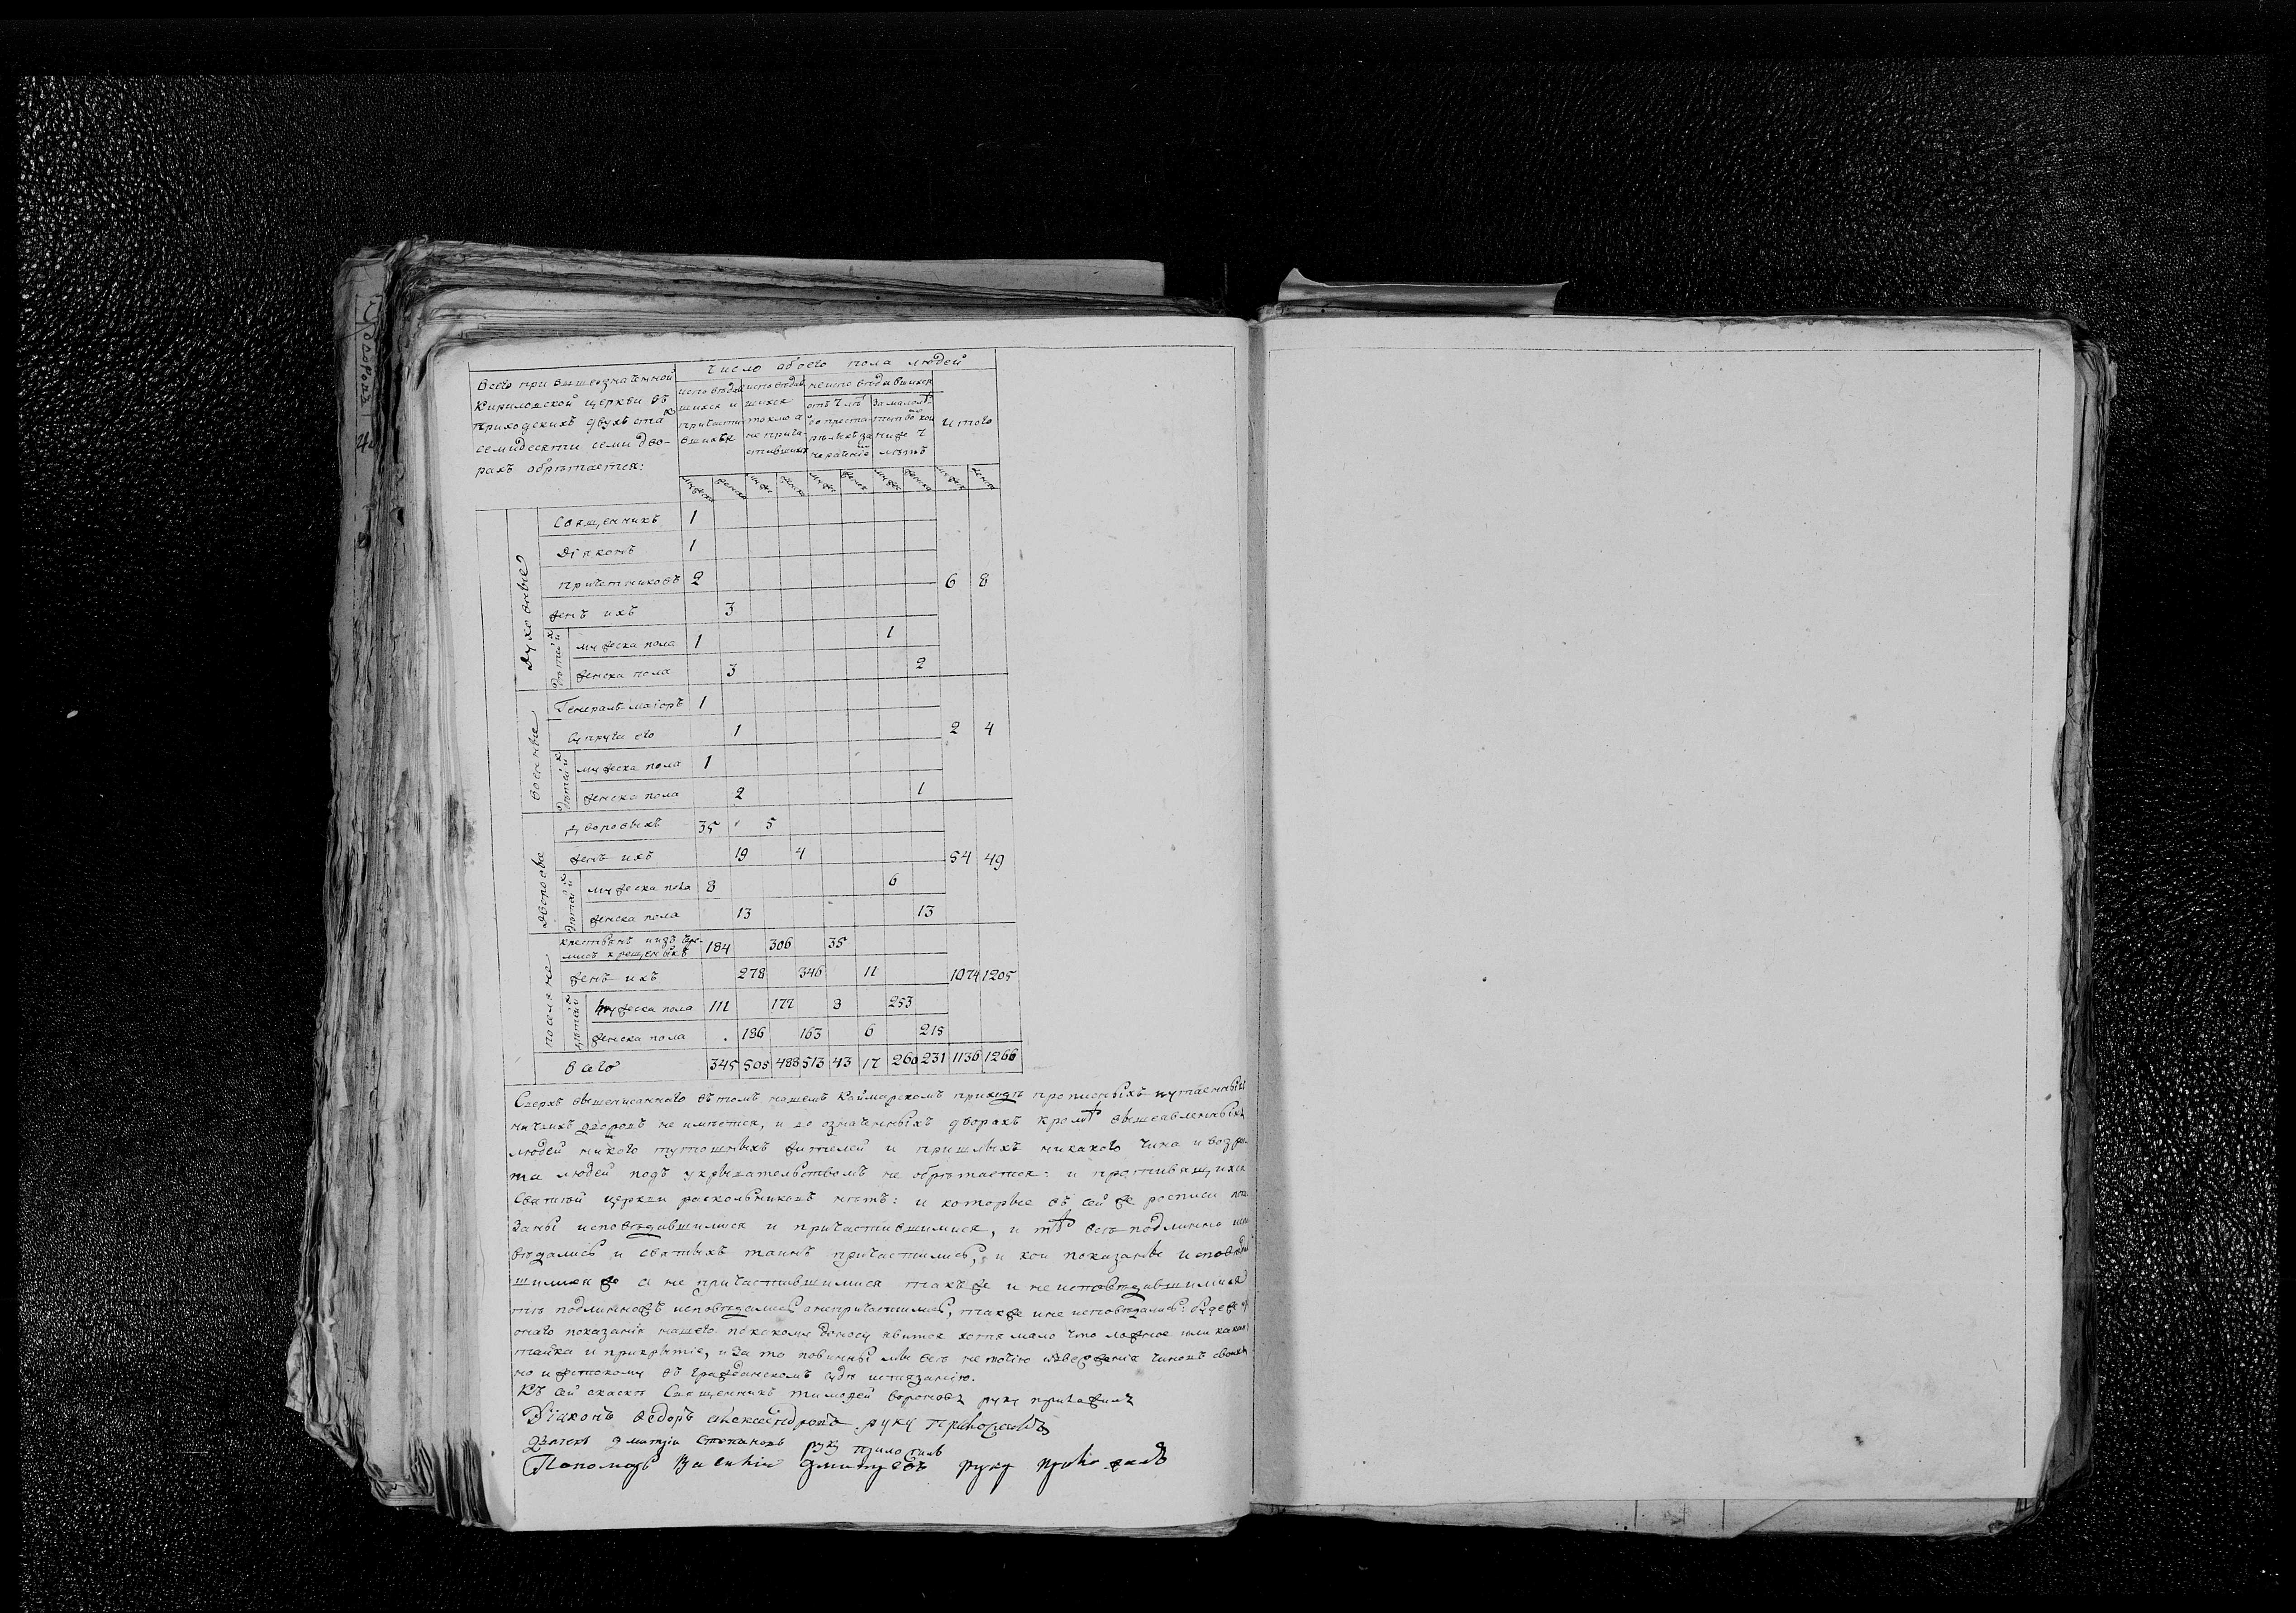 Число обоего пола людей
Всего при вышеозначенной
Кириловской церкви въ
приходскихъ двухъ ста
семидесяти семи дво-
рахъ обрѣтается:
исповѣдав
шихся и
причасти
вшихся
исповѣдав
шихся
токмо а
не прича-
стившихся
неисповѣдавшихся
отъ 7 лѣтъ
до преста-
рѣлыхъ за
нерачениемъ
за малолѣ-
тствомъ кои
ниже 7
лѣтъ
итого
мужеска женска муж женск муж женск муж женск муж женск
Духовные
Священникъ 1
Дїяконъ 1
причетниковъ 2 6 8
женъ ихъ 3
дѣтей ихъ
мужеска пола 1 1
женска пола 3 2
военные
Генералъ-маїоръ 1
супруга его 1 2 4
дѣтей ихъ
мужеска пола 1
женска пола 2 1
дворовые
дворовыхъ 35 5
женъ ихъ 19 4 54 49
дѣтей ихъ
мужеска пола 8 6
женска пола 13 13
поселяне
крестьянъ и изъ чере-
мисъ крещеныхъ 184 306 35
женъ ихъ 278 346 11 1074 1205
дѣтей ихъ
мужеска пола 111 177 8 253
женска пола 186 163 6 215
всего 345 505 488 513 43 17 260 231 1136 1266
Сверхъ вышеписанного въ томъ нашемъ Каймарскомъ приходѣ прописныхъ и утаенныхъ
ничьихъ дворовъ не имѣется, и во означенныхъ дворахъ кромѣ вышеявленныхъ
людей никого тутошныхъ жителей и пришлыхъ никакого чина и возра-
ста людей подъ укрывательствомъ не обрѣтается: и противящихся
святой церкви раскольниковъ нѣтъ: и которые въ сей же росписи пока
заны исповѣдавшимися и причастившимися, и тѣ всѣ подлинно испо
вѣдались и святыхъ таинъ причастились, и кои показаны исповѣдав
шимися же а не причастившимися такъ же и не исповѣдавшимися
тѣ подлинножъ исповѣдались а непричастились, такъ же и не исповѣдались: буде же
оного показанїя нашего по какому доносу явится хотя мало что ложное или какая
тайка и прикрытїе, и за то повинны мы всѣ не токмо извержения чиновъ своихъ
но и жестокому въ гражданскомъ судѣ истязанїю.
Къ сей скаскѣ Священникъ Тимофей Вороновъ руку приложилъ
Дїяконъ Ѳедоръ Александровъ руку приложилъ
Дьячекъ Дмитрїй Степановъ руку приложилъ
Пономарь Василїй Дмитріевъ руку приложилъ